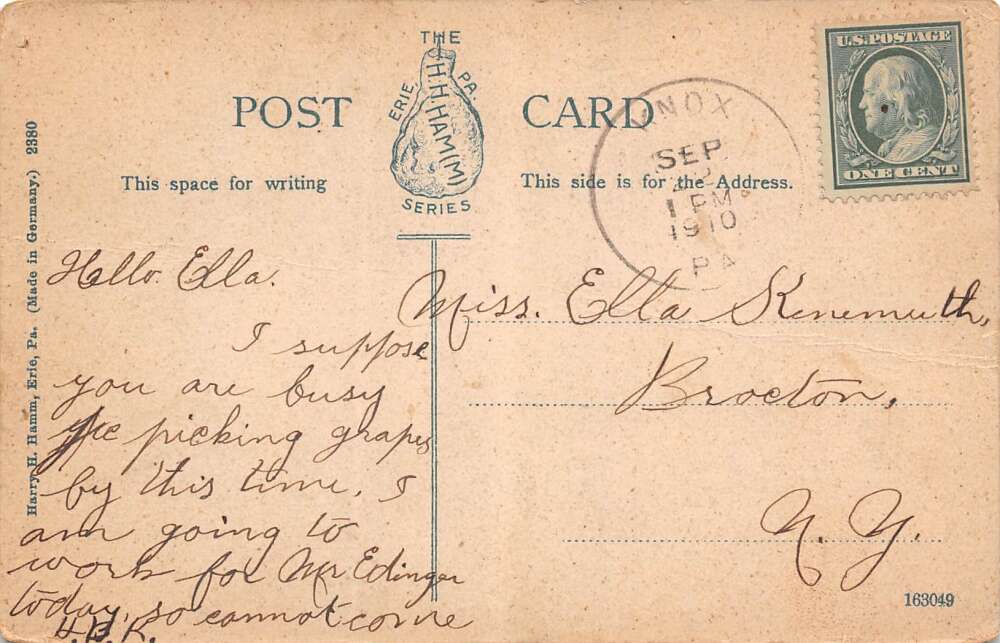 THE
H.H.HAM(M)
ERIE PA.
SERIES
POST CARD
This space for writing
This side is for the Address.
U.S. POSTAGE
ONE CENT
KNOX
SEP
1 PM
1910
PA
Harry H. Hamm, Erie, Pa. (Made in Germany.) 2380
Hello Ella.
I suppose
you are busy
picking grapes
by this time. I
am going to
work for Mr Edinger
today, so cannot come
H.B.K.
Miss. Ella Skinemuth,
Brocton,
N. Y.
163049